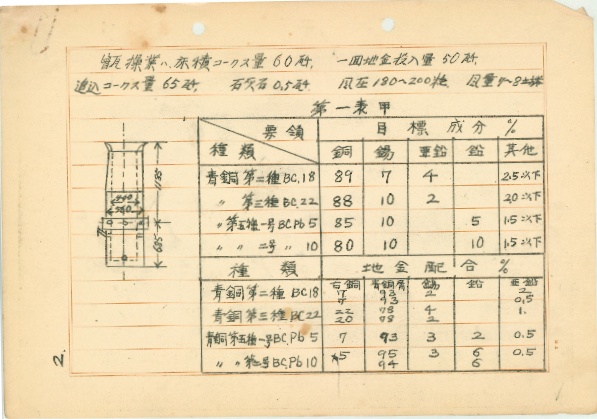 操業ハ床積コークス量 60瓩. 一回地金投入量 50瓩.
追込コークス量 65瓩 石灰石 0.5瓩 風圧 180~200粍 風量 4~8
第一表甲
要領 目標成分 %
種類 銅 錫 亜鉛 鉛 其他
青銅第二種 BC.18 89 7 4 2.5以下
〃 第三種 BC.22 88 10 2 2.0以下
〃 第五種一号 BC.Pb 5 85 10 5 1.5以下
〃 〃 二号〃 10 80 10 10 1.5以下
種類 地金配合 %
銅 青銅屑 錫 鉛 亜鉛
青銅第二種 BC18 7 93 2 2
7 93 0.5
青銅第三種 BC22 22 78 4 1.
20 78 2
青銅第五種一号 BC.Pb 5 7 93 3 2 0.5
〃 〃 第二号 BC.Pb 10 5 95 3 6 0.5
94 6
1180
440
760
685
2.